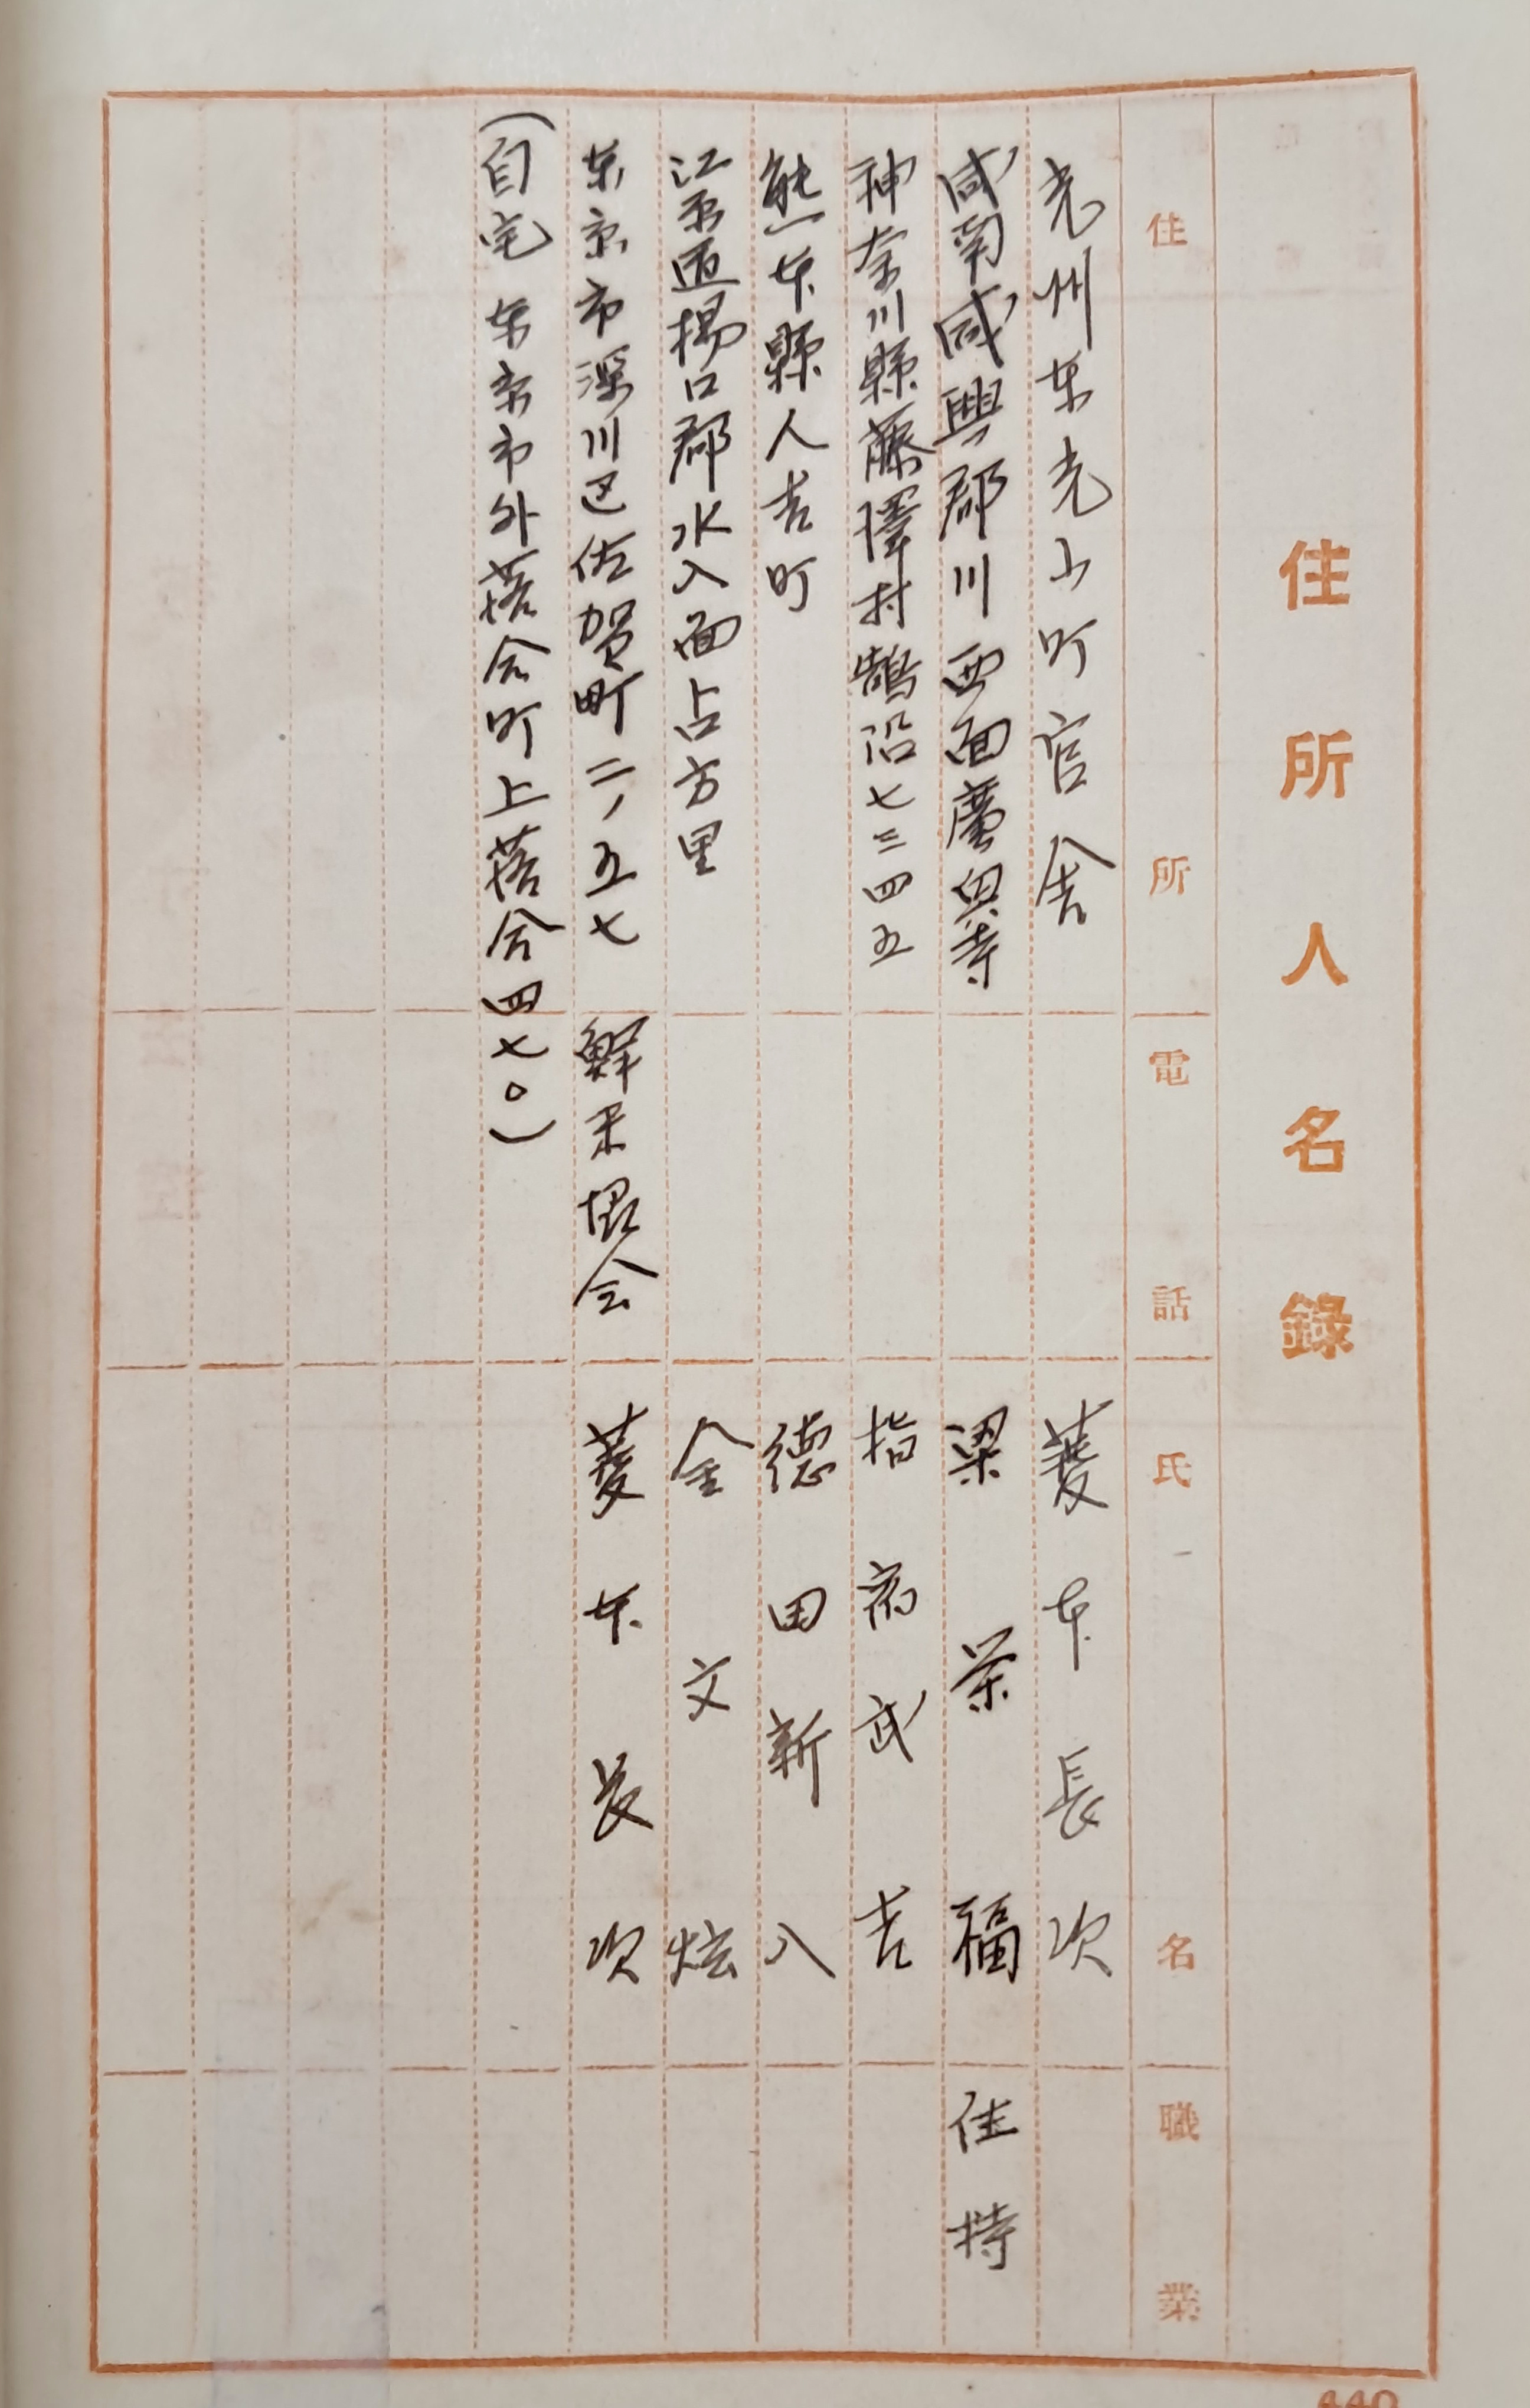 住所人名錄
住所 電話 氏名 職業
光州東光山町官舍 菱本長次
咸南咸興郡川西面廣興寺 梁荣福 住持
神奈川縣藤澤村鵠沼七三四五 指高武吉
熊本縣人吉町 德田新八
江原道楊口郡水入面占方里 金文炫
東京市深川区佐賀町二ノ五七 鮮米協会 菱本長次
(自宅 東京市外落合町上落合四七〇)
440